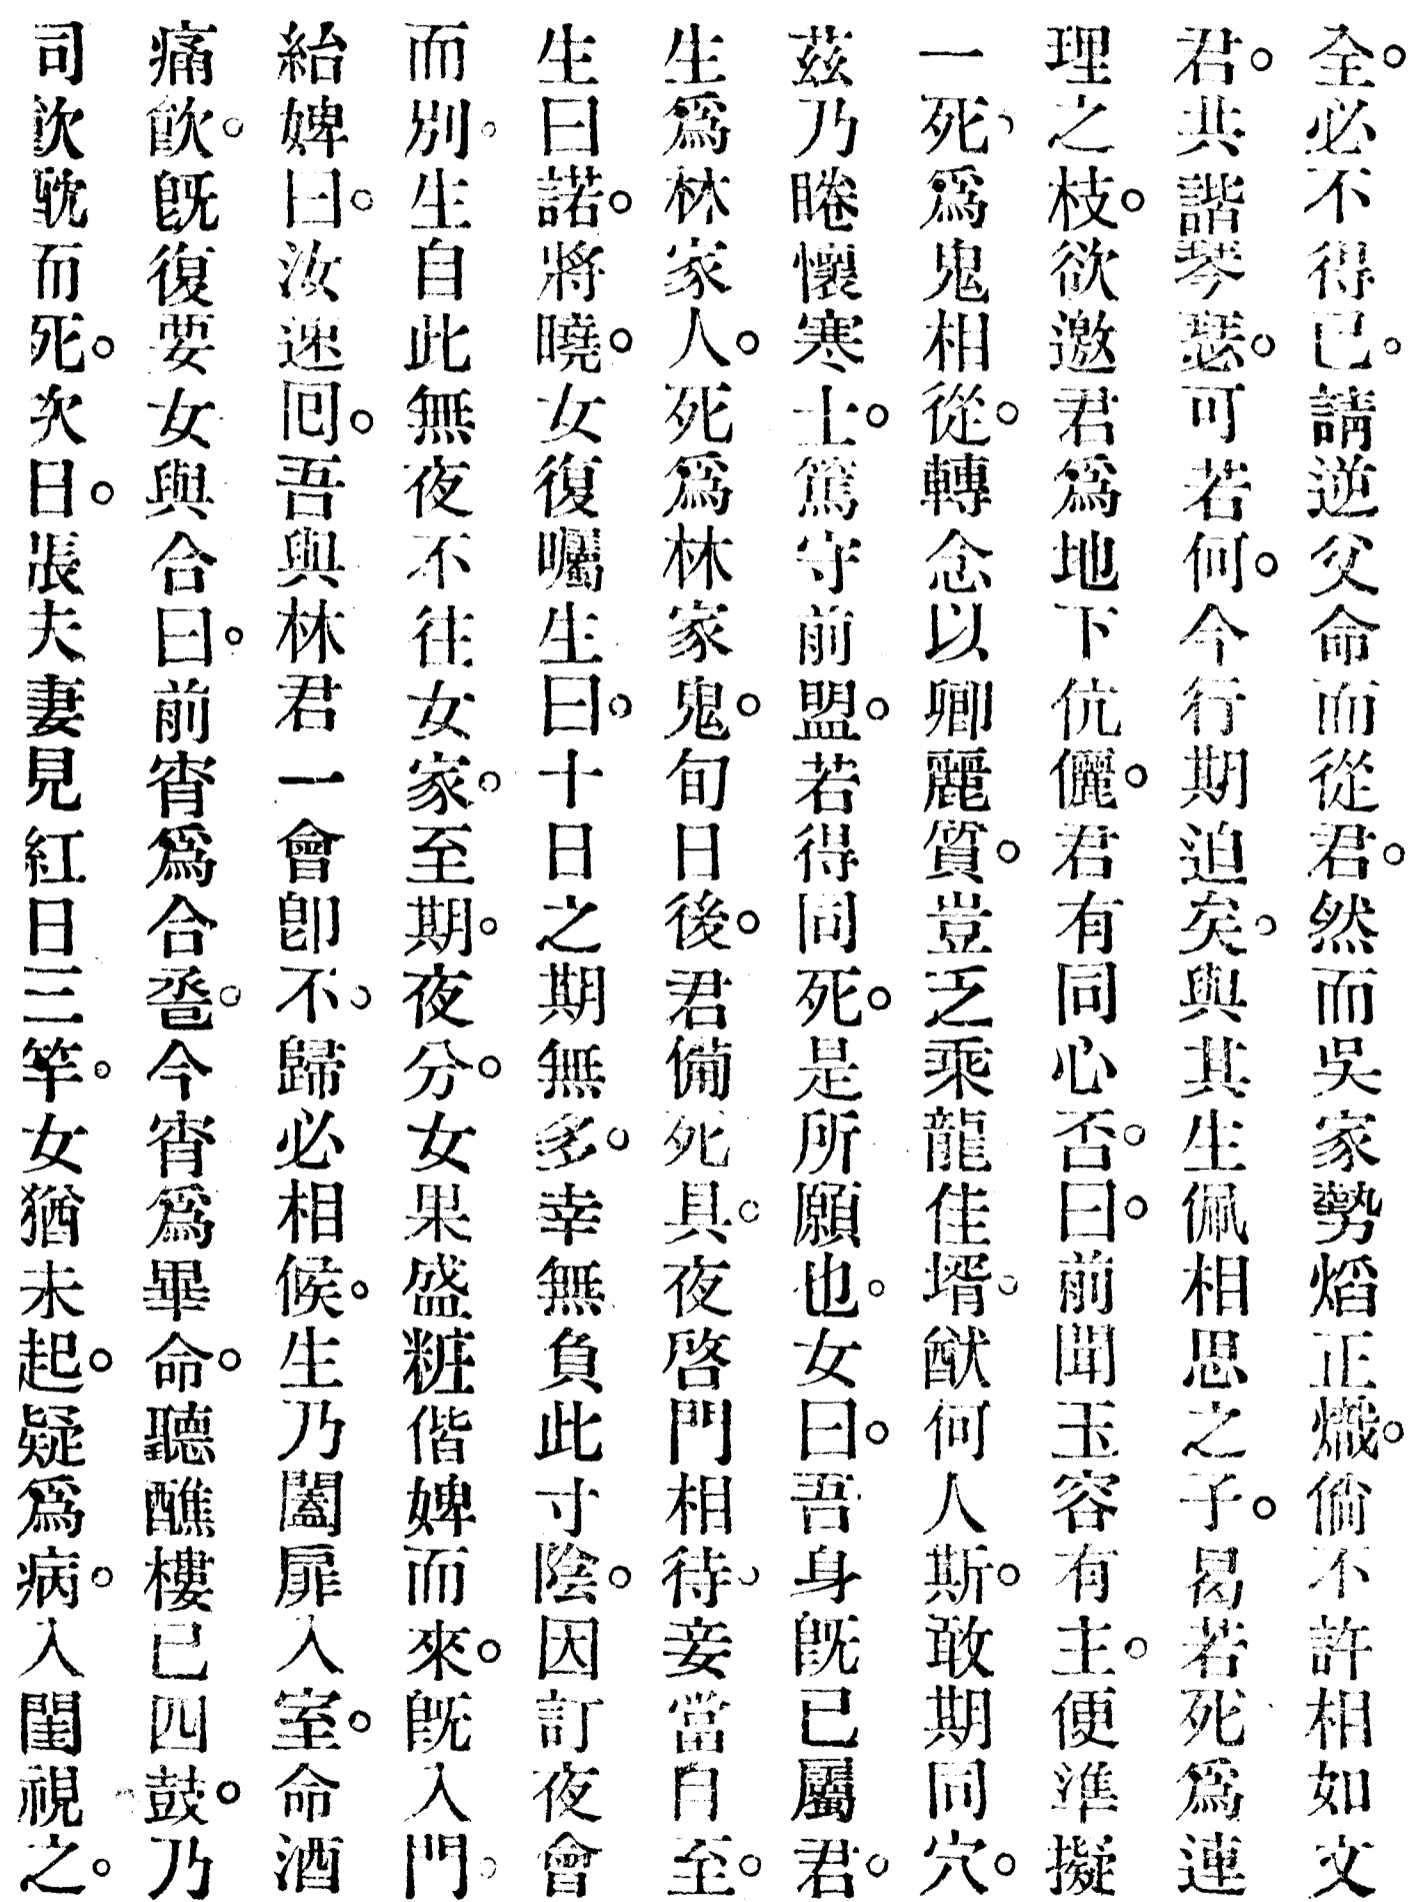 全。必不得已。請逆父命而從君。然而吳家勢熖正熾。倘不許相如文
君。共諧琴瑟。可若何。今行期迫矣。與其生佩相思之子。曷若死爲連
理之枝。欲邀君爲地下伉儷。君有同心否。曰。前聞玉容有主。便準擬
一死。爲鬼相從。轉念以卿麗質。豈乏乘龍佳壻。猷何人斯。敢期同穴。
茲乃睠懷寒士。篤守前盟。若得同死。是所願也。女曰。吾身旣已屬君。
生爲林家人。死爲林家鬼。旬日後。君備死具。夜啓門相待。妾當自至。
生曰諾。將曉。女復囑生曰。十日之期無多。幸無負此寸陰。因訂夜會
而別。生自此無夜不往女家。至期。夜分。女果盛粧偕婢而來。旣入門。
紿婢曰。汝速囘。吾與林君一會卽不。歸必相候。生乃闔扉入室。命酒
痛飮。旣復要女與合曰。前宵爲合巹。今宵爲畢命。聽醮樓已四鼓。乃
司飮酖而死。次日。張夫妻見紅日三竿。女猶未起。疑爲病。入閨視之。